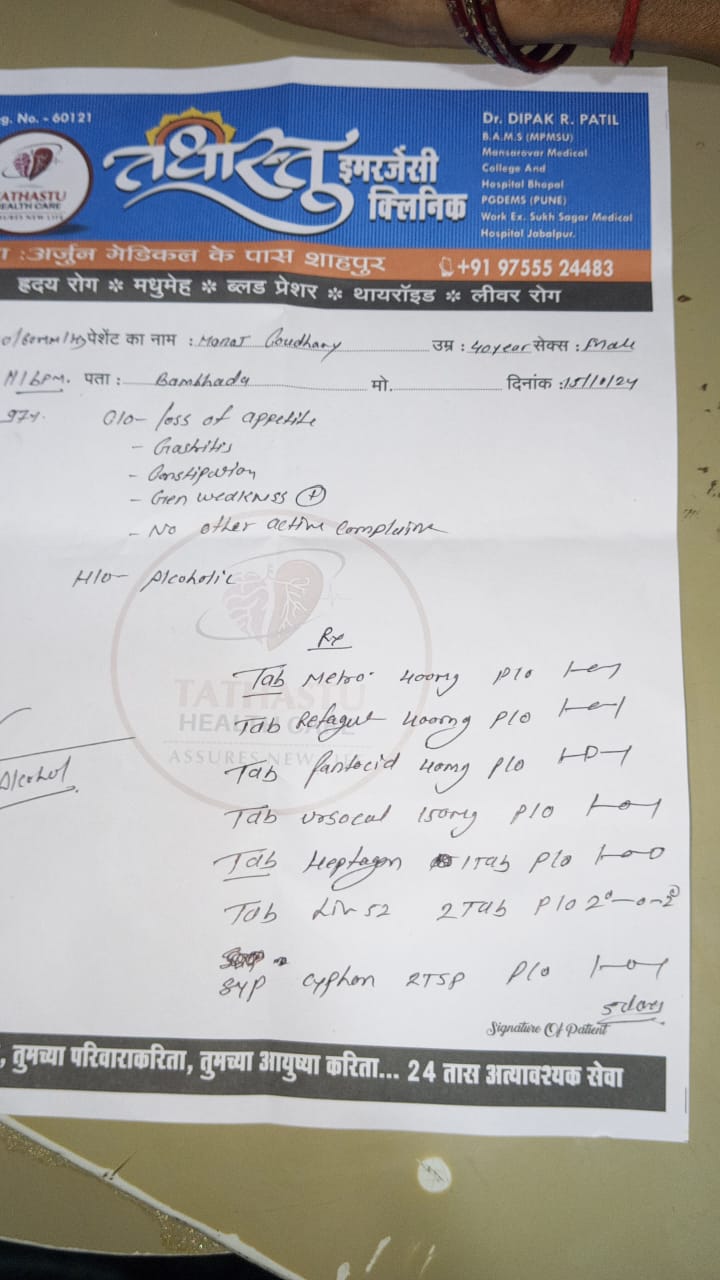 g. No. - 60121
TATHASTU
HEALTH CARE
ASSURES NEW LIFE
तथास्तु इमरजेंसी क्लिनिक
Dr. DIPAK R. PATIL
B.A.M.S (MPMSU)
Mansarovar Medical
College And
Hospital Bhopal
PGDEMS (PUNE)
Work Ex. Sukh Sagar Medical
Hospital Jabalpur.
: अर्जुन मेडिकल के पास शाहपुर
+91 97555 24483
ह्रदय रोग * मधुमेह * ब्लड प्रेशर * थायरॉइड * लीवर रोग
पेशेंट का नाम : Manat Coudhary उम्र : 40 year सेक्स : Male
पता : Bambhada मो. दिनांक : 15/10/24
97%. C/o - loss of appetite
- Gastritis
- Constipation
- Gen weakness (+)
- No other active complaine
H/o - Alcoholic
Rx
TATHASTU
HEALTH CARE
ASSURES NEW LIFE
Tab Metro. 400mg P/o 1-0-1
Tab 400mg P/o 1-0-1
Tab Pantocid 40mg P/o 1-0-1
Alcohol
Tab Ursocal 150mg P/o 1-0-1
Tab Heptagon 1Tab P/o 1-0-0
Tab Liv 52 2Tab P/o 2-0-2
SYP Cyphon 2TSP P/o 1-0-1
5 days
Signature Of Patient
, तुमच्या परिवाराकरिता, तुमच्या आयुष्या करिता... 24 तास अत्यावश्यक सेवा